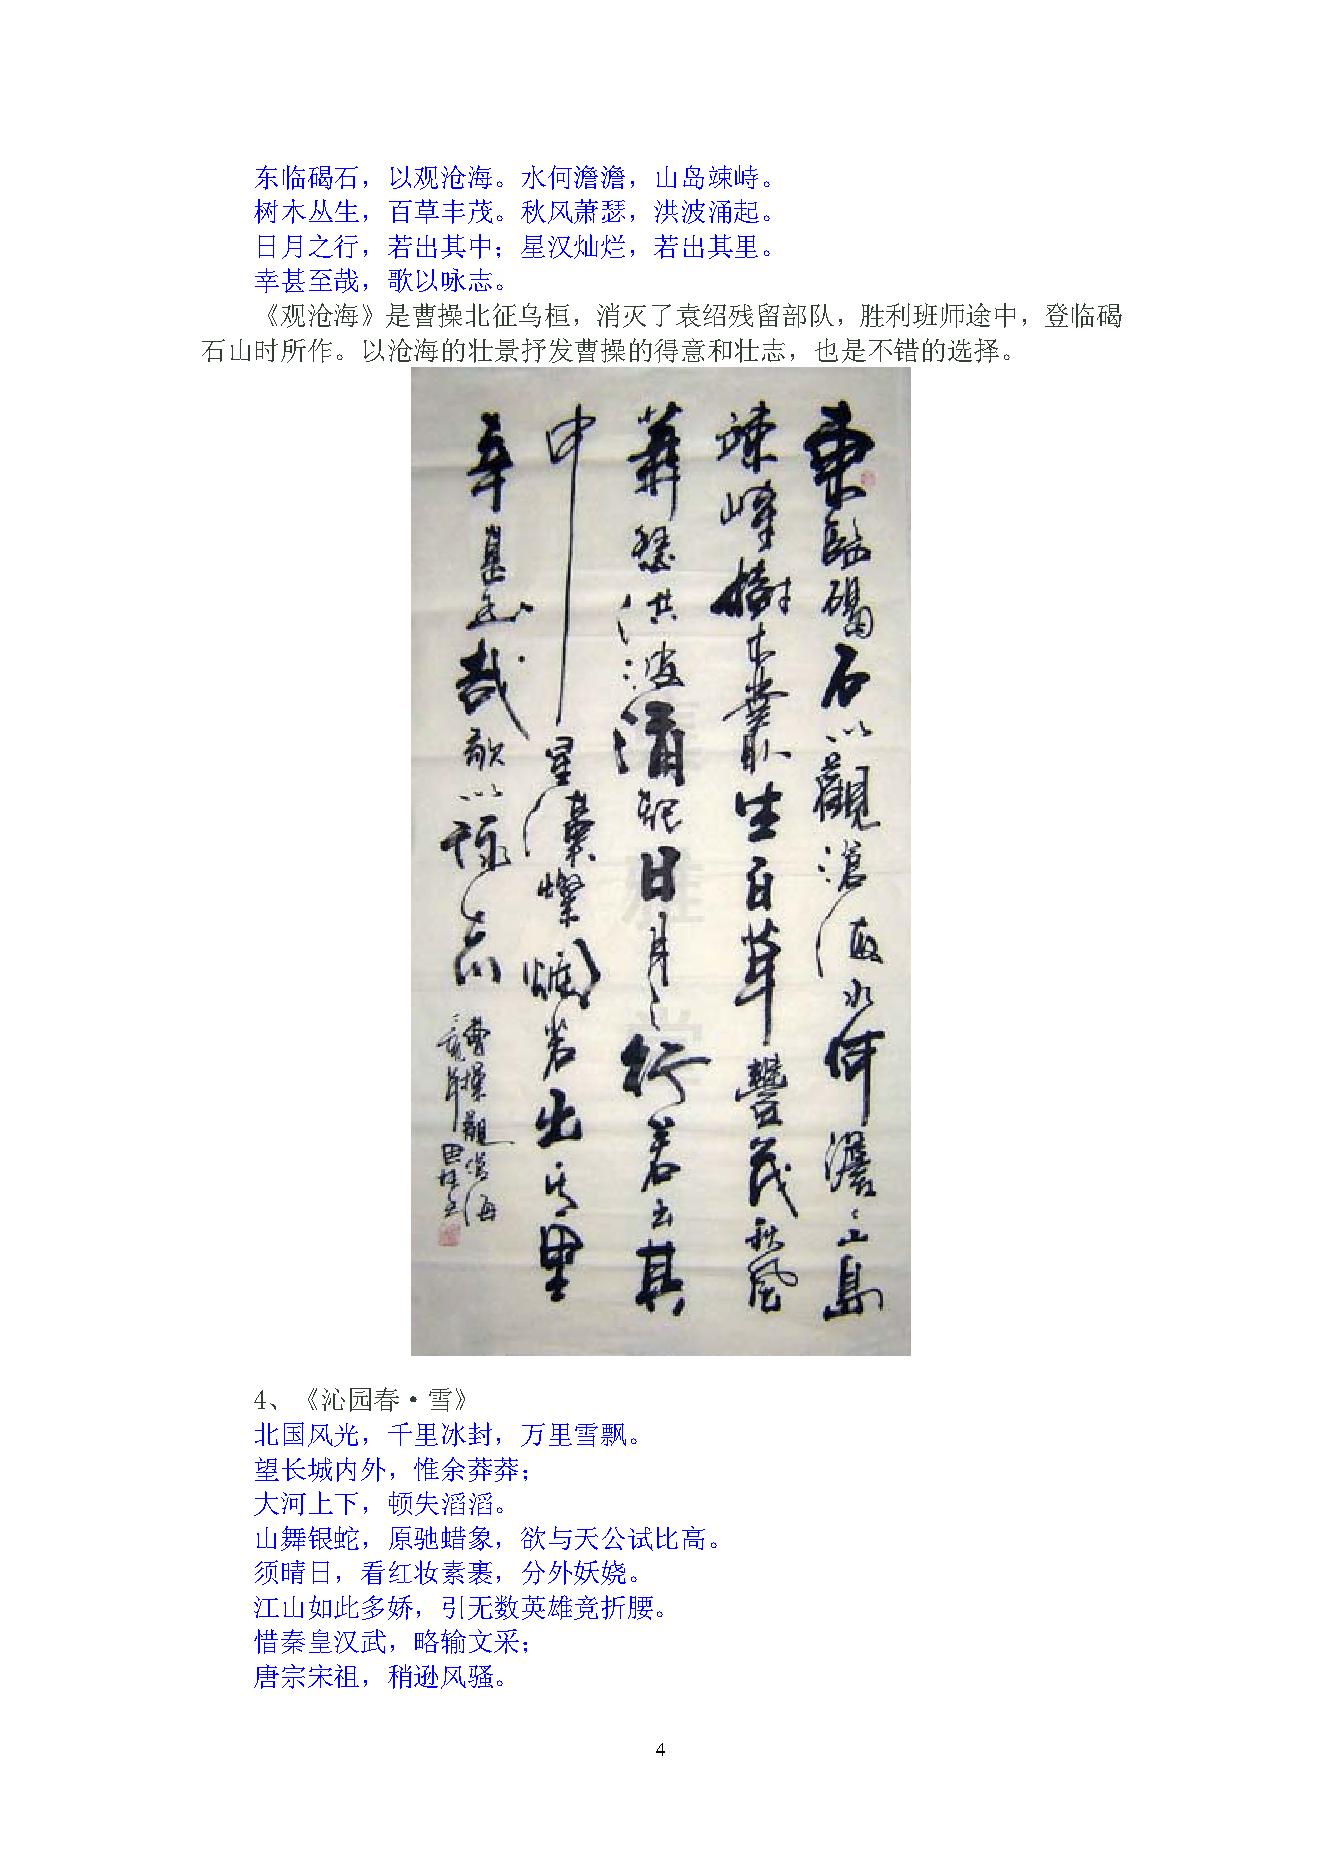 东临碣石，以观沧海。水何澹澹，山岛竦峙。
树木丛生，百草丰茂。秋风萧瑟，洪波涌起。
日月之行，若出其中；星汉灿烂，若出其里。
幸甚至哉，歌以咏志。
《观沧海》是曹操北征乌桓，消灭了袁绍残留部队，胜利班师途中，登临碣
石山时所作。以沧海的壮景抒发曹操的得意和壮志，也是不错的选择。
東臨碣石以觀滄海水何澹澹山島
竦峙樹木叢生百草豐茂秋風
蕭瑟洪波涌起日月之行若出其
中星漢燦爛若出其里
幸甚至哉歌以詠志
曹操觀滄海
4、《沁园春·雪》
北国风光，千里冰封，万里雪飘。
望长城内外，惟余莽莽；
大河上下，顿失滔滔。
山舞银蛇，原驰蜡象，欲与天公试比高。
须晴日，看红妆素裹，分外妖娆。
江山如此多娇，引无数英雄竞折腰。
惜秦皇汉武，略输文采；
唐宗宋祖，稍逊风骚。
4